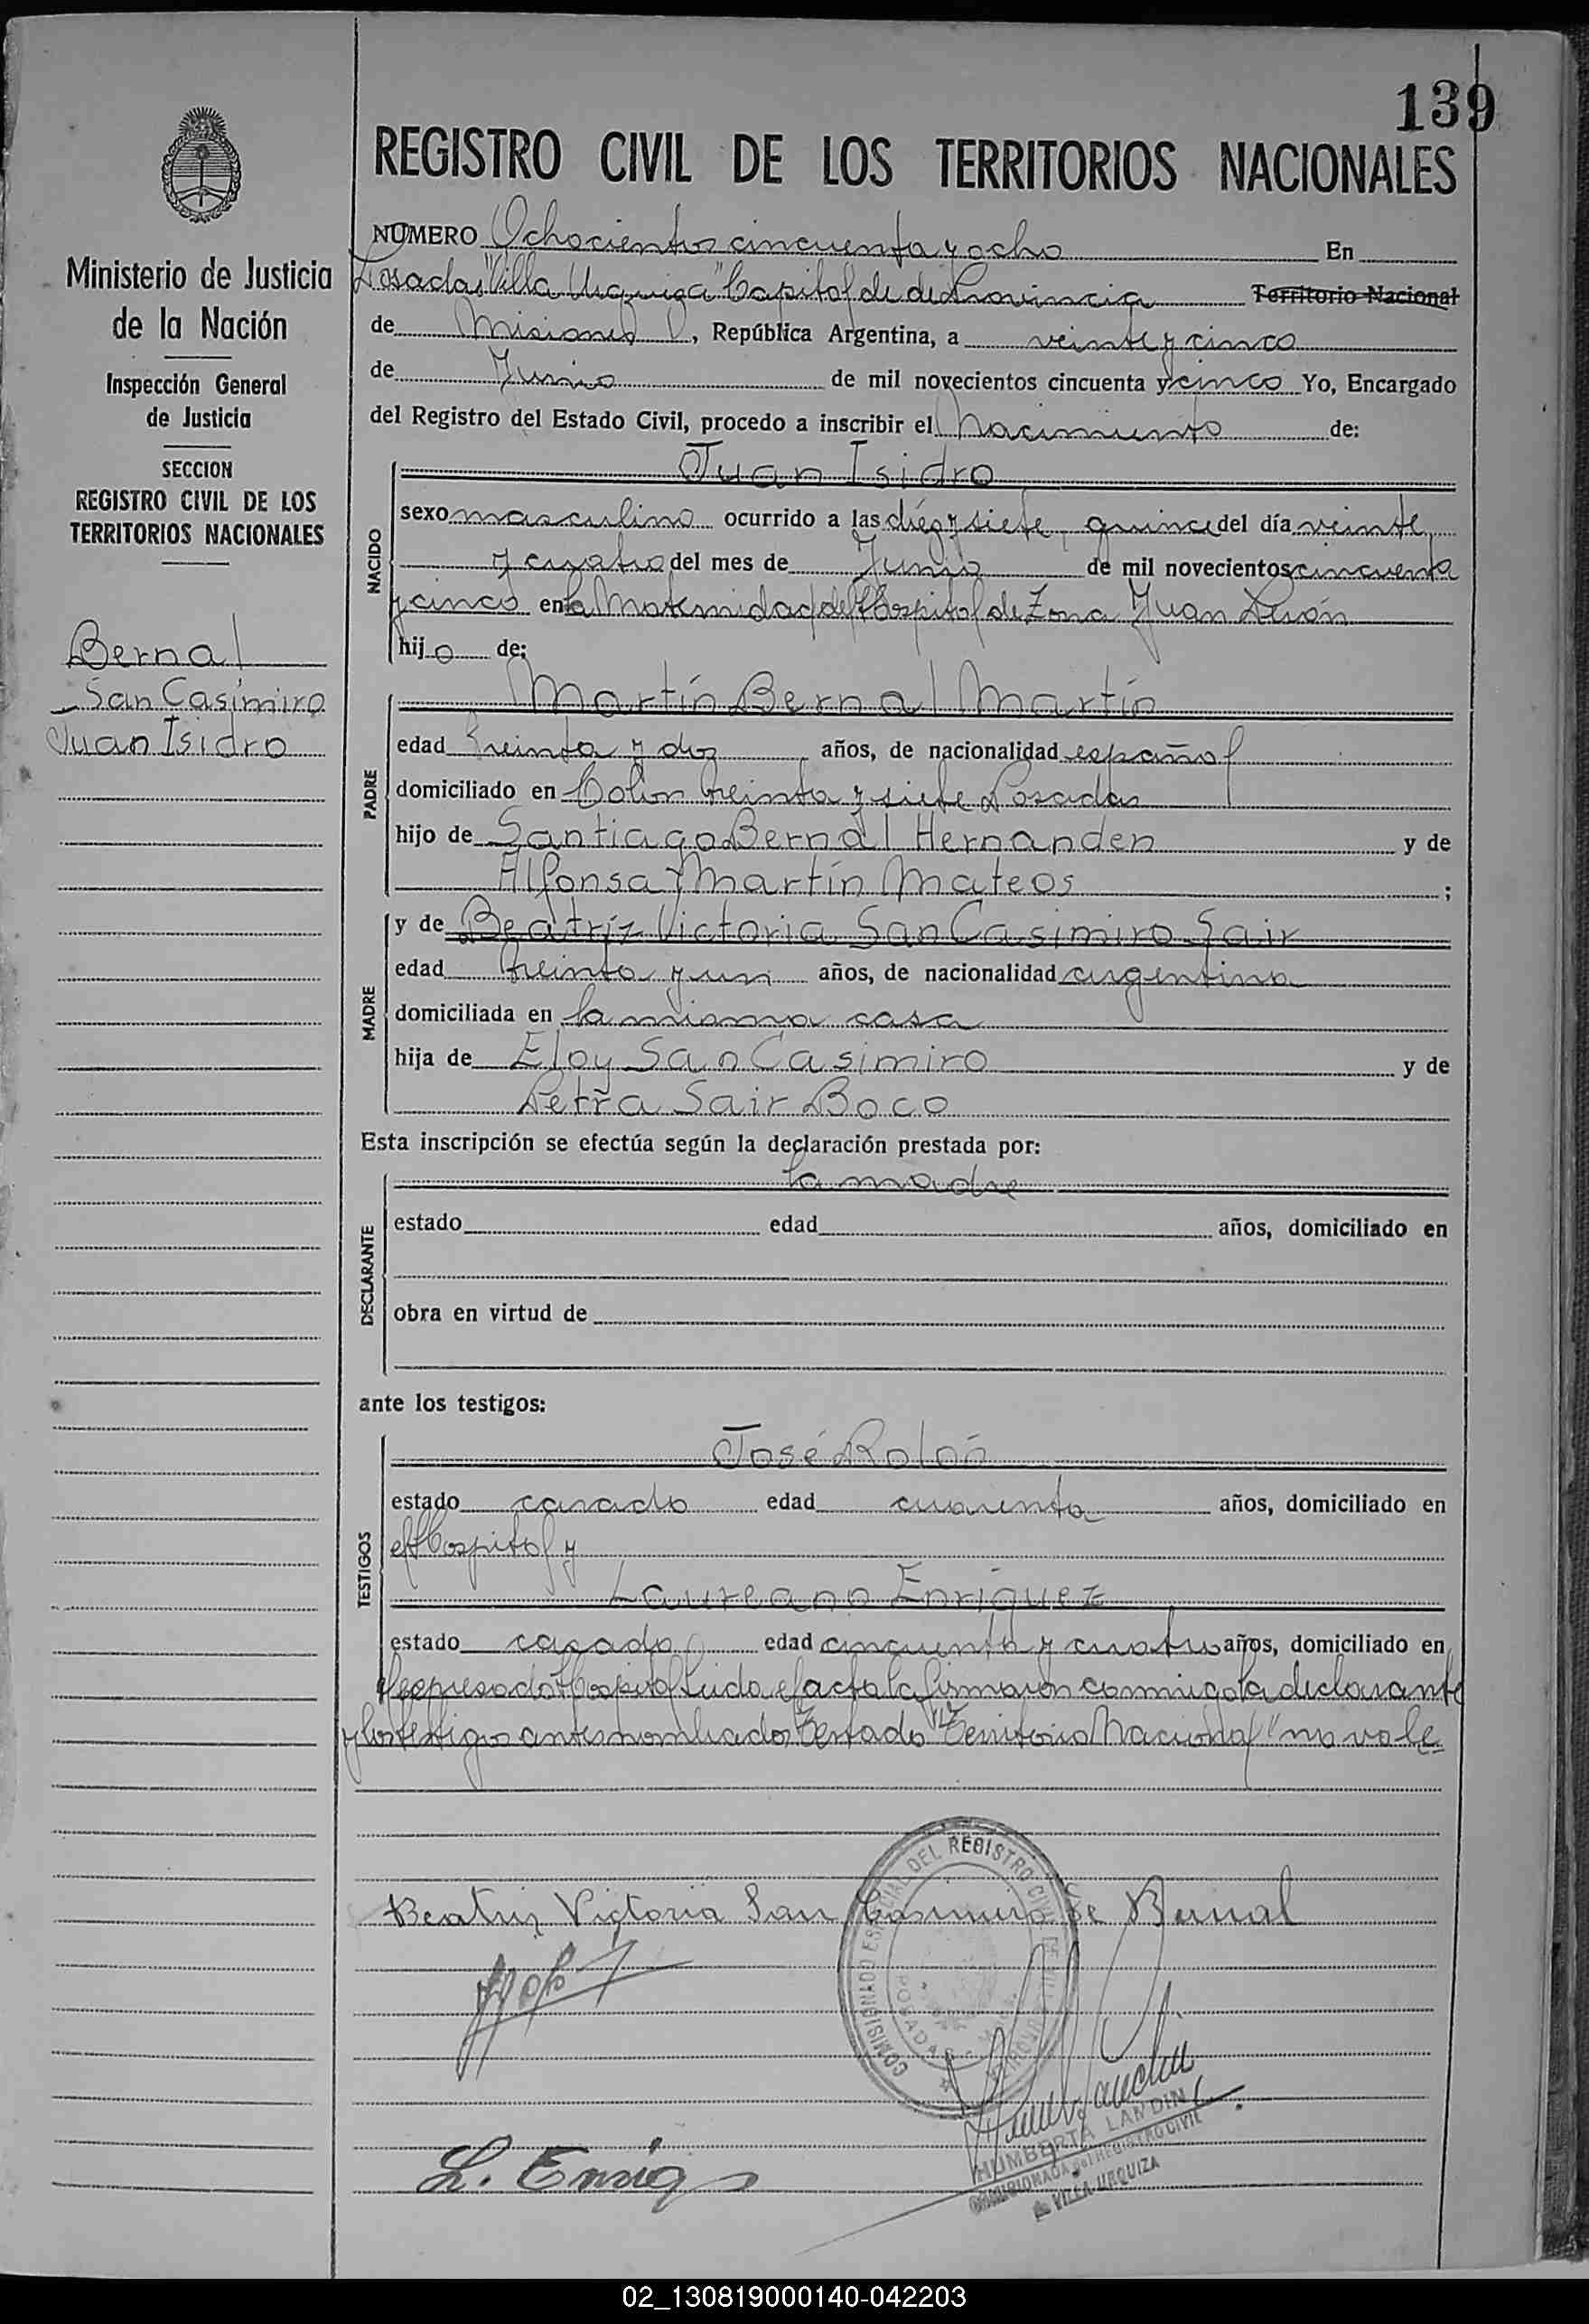 139
REGISTRO CIVIL DE LOS TERRITORIOS NACIONALES
Ministerio de Justicia
de la Nación
Inspección General
de Justicia
SECCION
REGISTRO CIVIL DE LOS
TERRITORIOS NACIONALES
Bernal
San Casimiro
Juan Isidro
NUMERO Ochocientos cincuenta y ocho En
Posadas "Villa Urquiza" Capital de de Provincia Territorio Nacional
de Misiones, República Argentina, a veinte y cinco
de Junio de mil novecientos cincuenta y cinco Yo, Encargado
del Registro del Estado Civil, procedo a inscribir el Nacimiento de:
NACIDO
Juan Isidro
sexo masculino ocurrido a las diez y siete, quince del día veinte
y cuatro del mes de Junio de mil novecientos cincuenta
y cinco en la Maternidad del Hospital de Zona Juan Perón
hijo de:
PADRE
Martín Bernal Martín
edad treinta y dos años, de nacionalidad español
domiciliado en Colón treinta y siete Posadas
hijo de Santiago Bernal Hernanden y de
Alfonsa Martín Mateos ;
MADRE
y de Beatríz Victoria San Casimiro Sair
edad treinta y un años, de nacionalidad argentina
domiciliada en la misma casa
hija de Eloy San Casimiro y de
Petra Sair Boco
Esta inscripción se efectúa según la declaración prestada por:
DECLARANTE
la madre
estado edad años, domiciliado en
obra en virtud de
ante los testigos:
TESTIGOS
José Rolón
estado casado edad cuarenta años, domiciliado en
el Hospital y
Laureano Enríquez
estado casado edad cincuenta y cuatro años, domiciliado en
el expresado Hospital Leida el acta la firmaron conmigo la declarante
y los testigos antes nombrados Testado "Territorio Nacional" no vale
Beatriz Victoria San Casimiro de Bernal
COMISIONADO ESPECIAL DEL REGISTRO CIVIL
POSADAS
L. Enriq
HUMBERTA LANDIN
COMISIONADA del REGISTRO CIVIL
VILLA URQUIZA
02_130819000140-042203